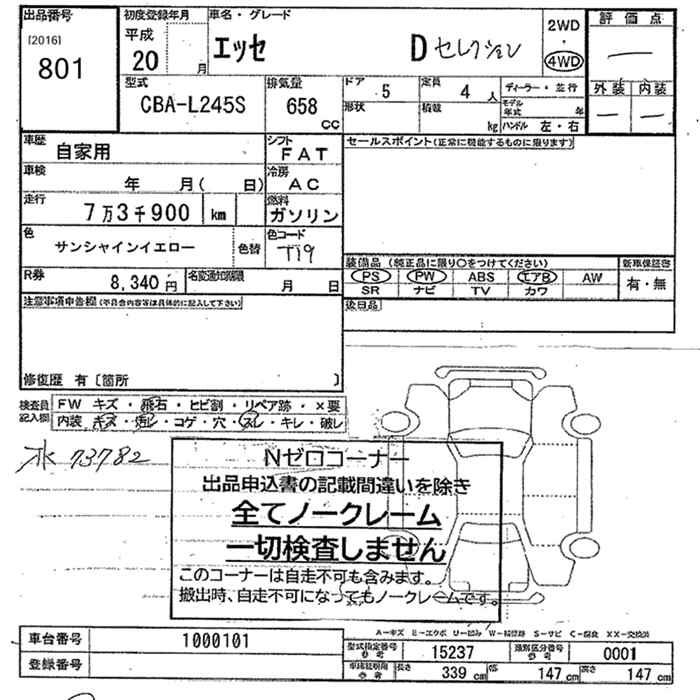 出品番号 初度登録年月 車名・グレード 2WD 評価点
[2016] 平成
801 20 月 エッセ D セレクション ・ 4WD
型式 排気量 ドア 5 定員 4 人 ディーラー・並行 外装 内装
CBA-L245S 658 CC 形状 積載 kg モデル年式 年
ハンドル 左・右
車歴 自家用 シフト FAT セールスポイント(正常に機能するものに限ります)
車検 年 月( 日) 冷房 AC
走行 7万3千900 km 燃料 ガソリン
色 サンシャインイエロー 色替 色コード T19
装備品(純正品に限り○をつけてください) 新車保証書
R券 8,340円 名変通知期限 月 日 PS PW ABS エアB AW 有・無
SR ナビ TV カワ
注意事項申告欄(不具合内容等は具体的に記入して下さい) 後日品
修復歴 有〔箇所 〕
検査員記入欄 FW キズ・飛石・ヒビ割・リペア跡・×要
内装 キズ・汚レ・コゲ・穴・スレ・キレ・破レ
73782
Nゼロコーナー
出品申込書の記載間違いを除き
全てノークレーム
一切検査しません
このコーナーは自走不可も含みます。
搬出時、自走不可になってもノークレームです。
A-キズ E-エクボ U-凹み W-補修跡 S-サビ C-腐食 XX-交換済
車台番号 1000101 型式指定番号 参考 15237 類別区分番号 参考 0001
登録番号 参考 長さ 339 cm 幅 147 cm 高さ 147 cm